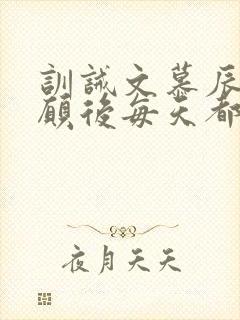 訓誡文慕辰
願後每天都
夜月天天